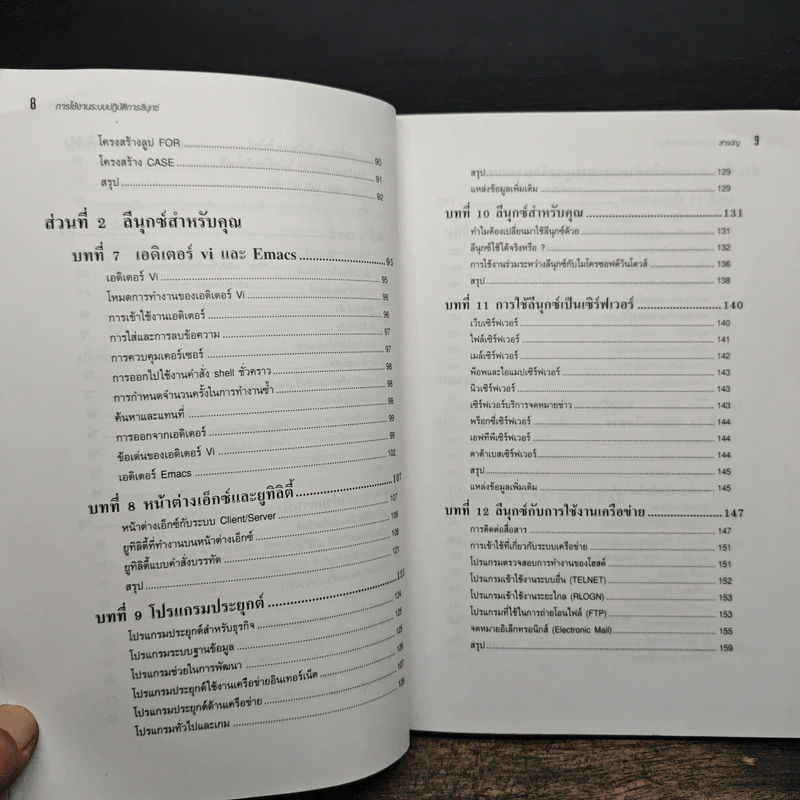 8 การใช้งานระบบปฏิบัติการลีนุกซ์
โครงสร้างลูป FOR 90
โครงสร้าง CASE 91
สรุป 92
ส่วนที่ 2 ลีนุกซ์สำหรับคุณ
บทที่ 7 เอดิเตอร์ vi และ Emacs 95
เอดิเตอร์ Vi 95
โหมดการทำงานของเอดิเตอร์ Vi 96
การเข้าใช้งานเอดิเตอร์ 96
การใส่และการลบข้อความ 97
การควบคุมเคอร์เซอร์ 97
การออกไปใช้งานคำสั่ง shell ชั่วคราว 98
การกำหนดจำนวนครั้งในการทำงานซ้ำ 98
ค้นหาและแทนที่ 98
การออกจากเอดิเตอร์ 99
ข้อเด่นของเอดิเตอร์ Vi 99
เอดิเตอร์ Emacs 102
บทที่ 8 หน้าต่างเอ็กซ์และยูทิลิตี้ 107
หน้าต่างเอ็กซ์กับระบบ Client/Server 107
ยูทิลิตี้ที่ทำงานบนหน้าต่างเอ็กซ์ 108
ยูทิลิตี้แบบคำสั่งบรรทัด 108
สรุป 121
บทที่ 9 โปรแกรมประยุกต์ 123
โปรแกรมประยุกต์สำหรับธุรกิจ 124
โปรแกรมระบบฐานข้อมูล 125
โปรแกรมช่วยในการพัฒนา 125
โปรแกรมประยุกต์ใช้งานเครือข่ายอินเทอร์เน็ต 126
โปรแกรมประยุกต์ด้านเครือข่าย 127
โปรแกรมทั่วไปและเกม 128
สารบัญ 9
สรุป 129
แหล่งข้อมูลเพิ่มเติม 129
บทที่ 10 ลีนุกซ์สำหรับคุณ 131
ทำไมต้องเปลี่ยนมาใช้ลีนุกซ์ด้วย 131
ลีนุกซ์ใช้ได้จริงหรือ ? 132
การใช้งานร่วมระหว่างลีนุกซ์กับไมโครซอฟต์วินโดวส์ 136
สรุป 138
บทที่ 11 การใช้ลีนุกซ์เป็นเซิร์ฟเวอร์ 140
เว็บเซิร์ฟเวอร์ 140
ไฟล์เซิร์ฟเวอร์ 141
เมล์เซิร์ฟเวอร์ 142
พ็อพและไอแมปเซิร์ฟเวอร์ 143
นิวเซิร์ฟเวอร์ 143
เซิร์ฟเวอร์บริการจดหมายข่าว 143
พร็อกซี่เซิร์ฟเวอร์ 144
เอฟทีพีเซิร์ฟเวอร์ 144
ดาต้าเบสเซิร์ฟเวอร์ 144
สรุป 145
แหล่งข้อมูลเพิ่มเติม 145
บทที่ 12 ลีนุกซ์กับการใช้งานเครือข่าย 147
การติดต่อสื่อสาร 147
การเข้าใช้ที่เกี่ยวกับระบบเครือข่าย 151
โปรแกรมตรวจสอบการทำงานของโฮสต์ 151
โปรแกรมเข้าใช้งานระบบอื่น (TELNET) 152
โปรแกรมเข้าใช้งานระยะไกล (RLOGN) 153
โปรแกรมที่ใช้ในการถ่ายโอนไฟล์ (FTP) 153
จดหมายอิเล็กทรอนิกส์ (Electronic Mail) 155
สรุป 159